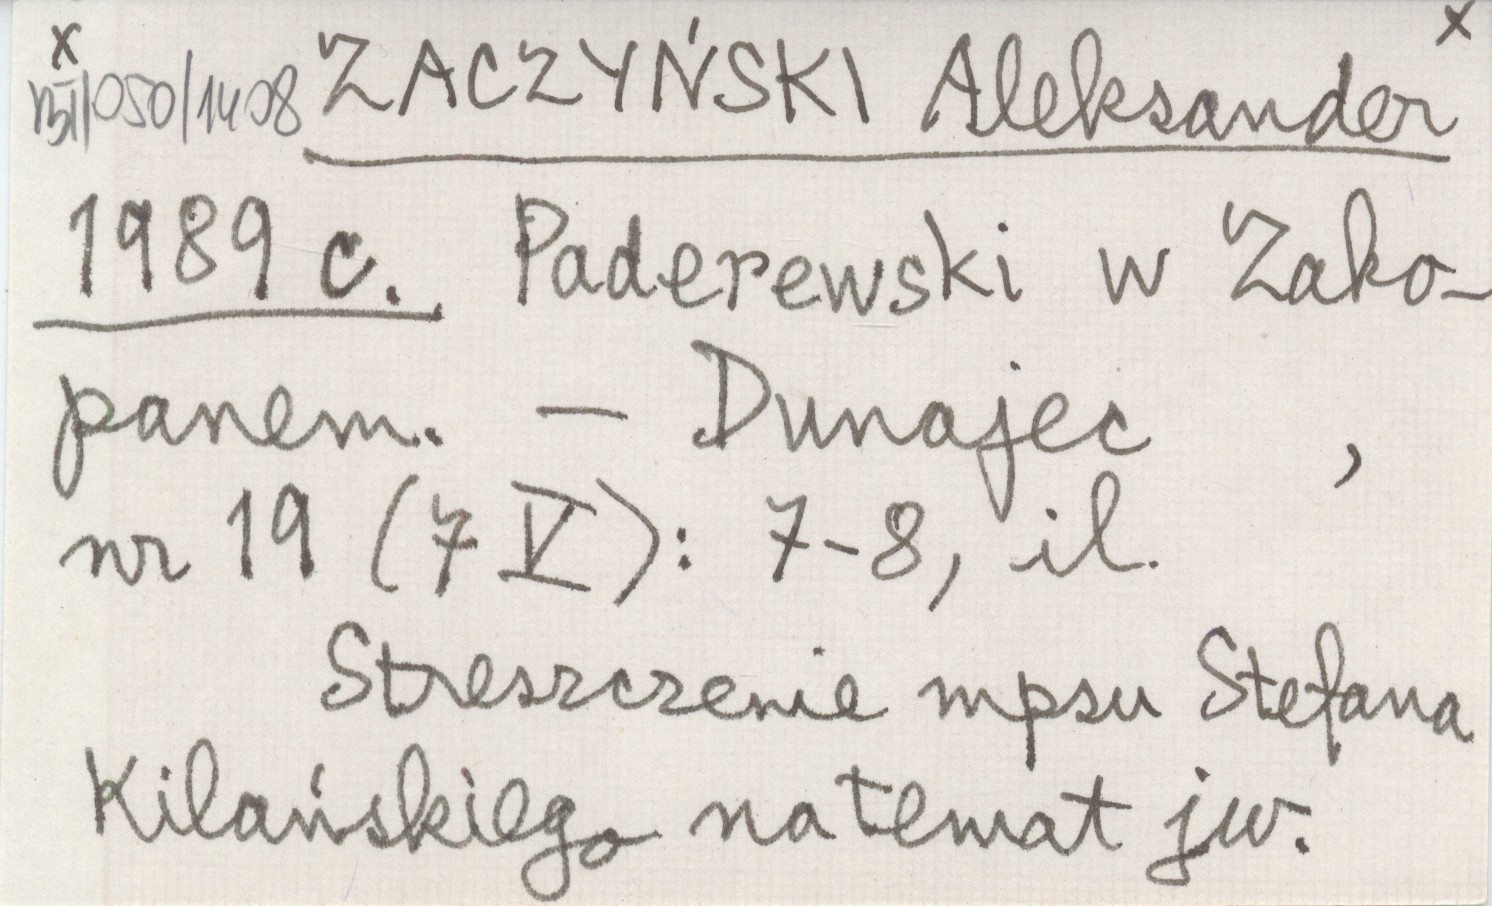 x x
050/1408 ZACZYŃSKI Aleksander
1989 c. Paderewski w Zako-
panem. – Dunajec ,
nr 19 (7 V): 7-8, il.
Streszczenie mpsu Stefana
Kilańskiego na temat jw.